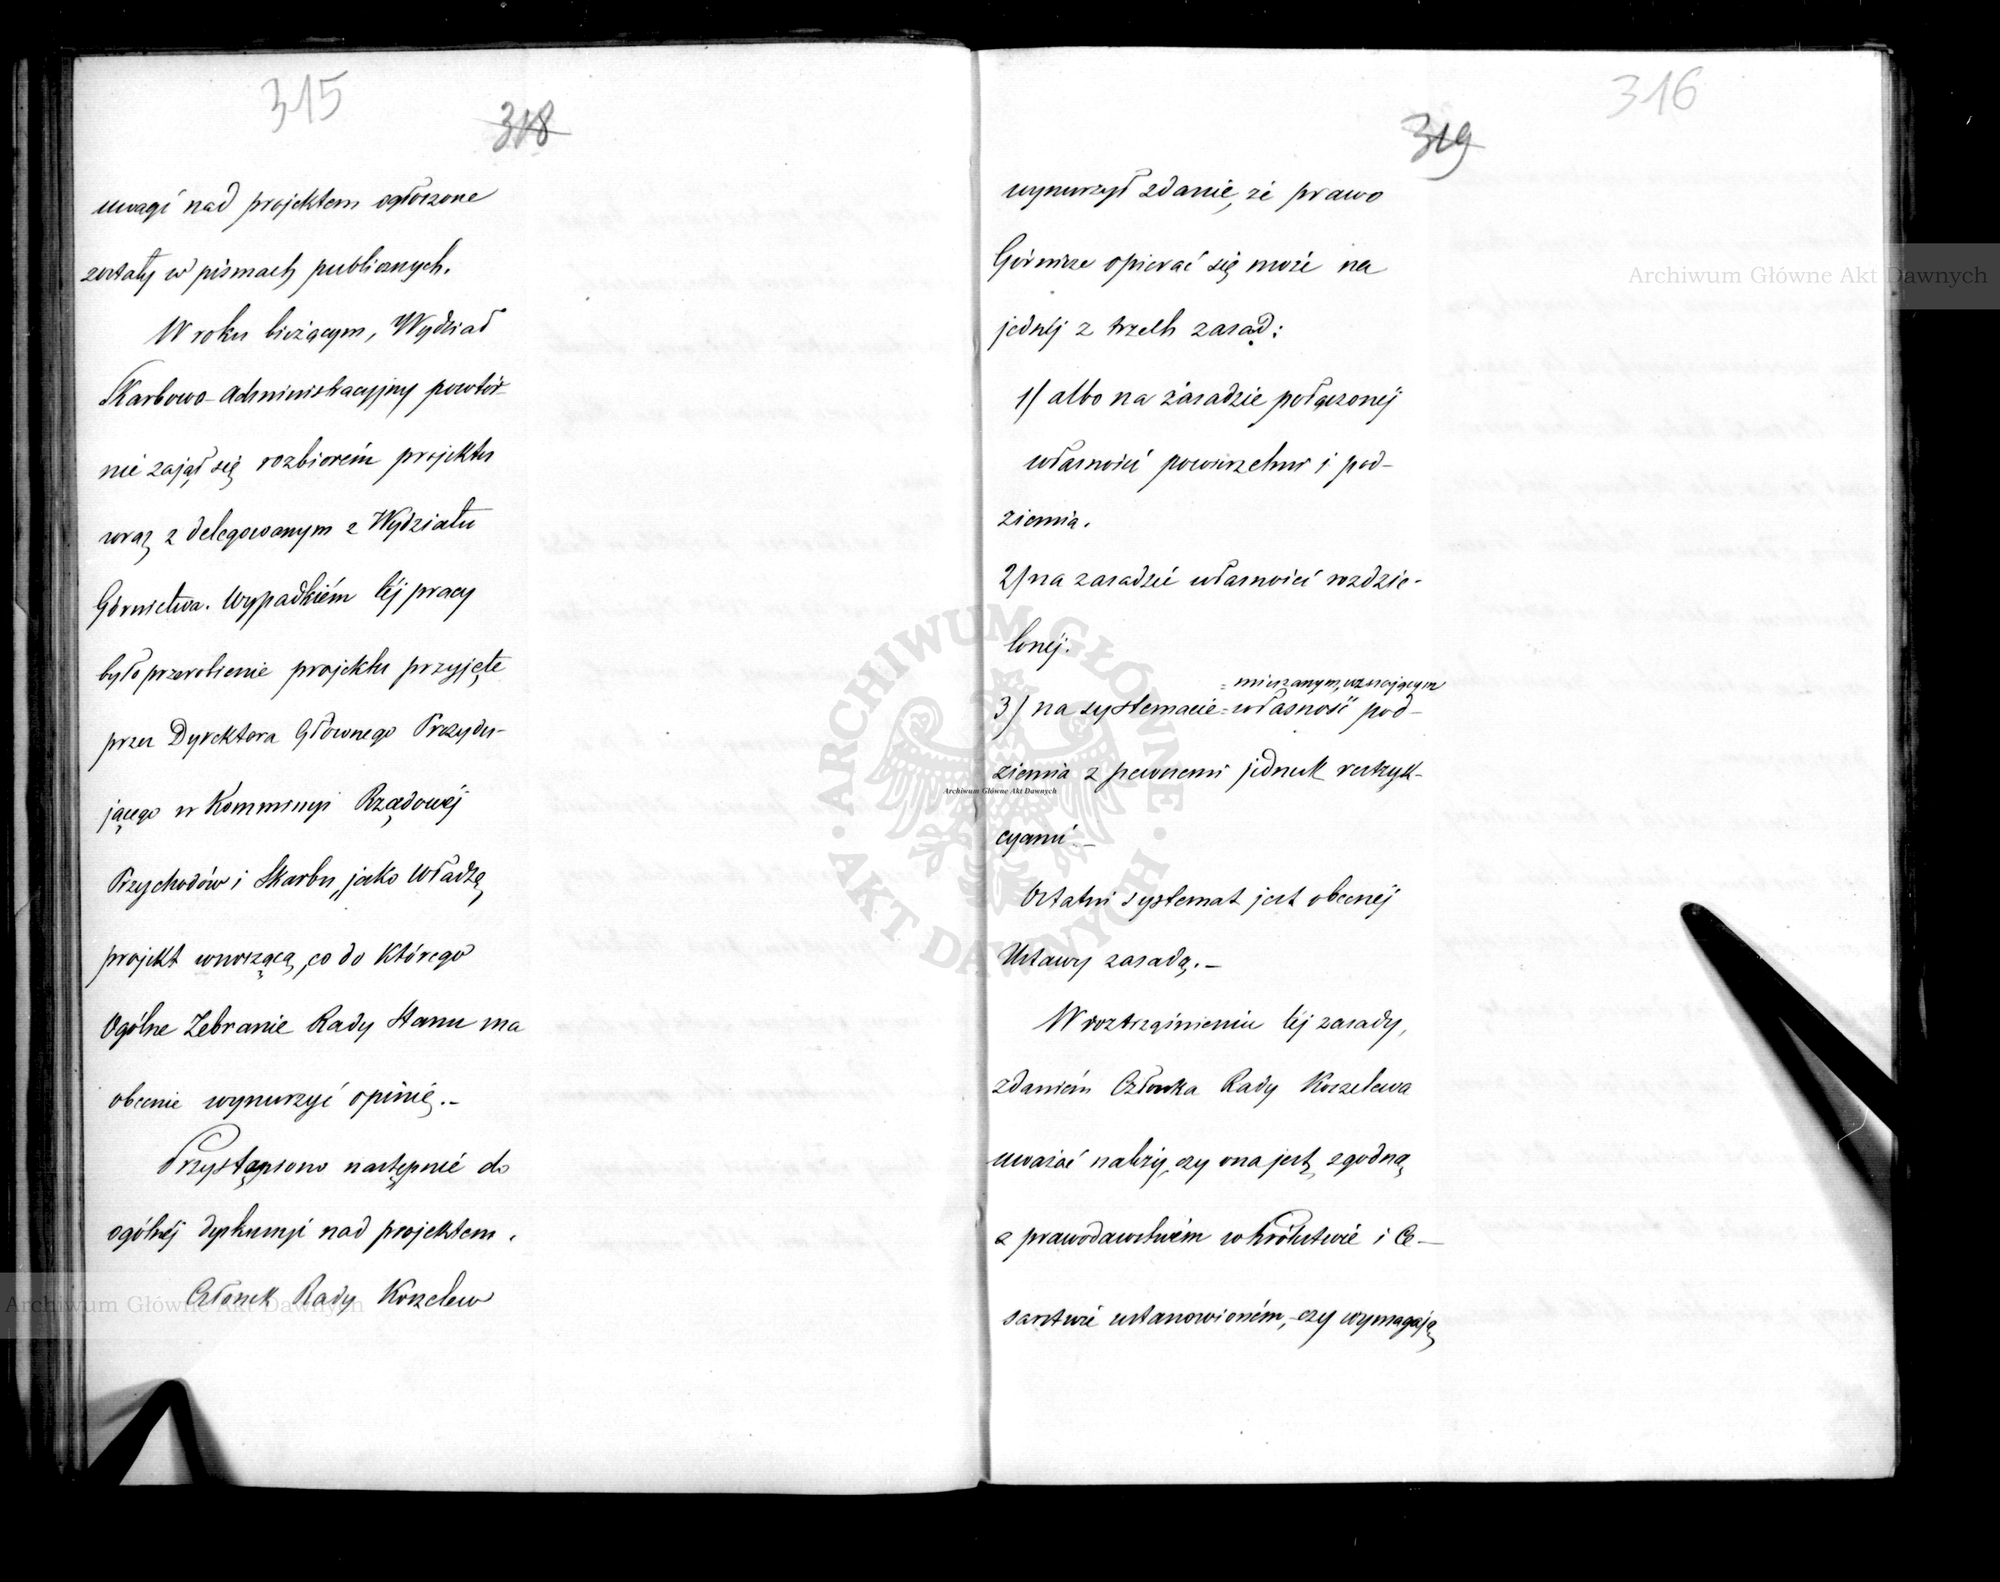 315
318
uwagi nad projektem ogłoszone
zostały w pismach publicznych.
W roku bieżącym, Wydział
Skarbowo-Administracyjny powtór-
nie zajął się rozbiorem projektu
wraz z delegowanym z Wydziału
Górnictwa. Wypadkiém téj pracy
było przerobienie projektu przyjęte
przez Dyrektora Głównego Prezydu-
jącego w Kommissyi Rządowéj
Przychodów i Skarbu, jako Władzę
projekt wnoszącą, co do którego
Ogólne Zebranie Rady Stanu ma
obecnie wynurzyć opinię.-
Przystąpiono następnie do
ogólnéj dyskussyi nad projektem.
Członek Rady Koszelew
316
319
wynurzył zdanie, że prawo
Górnicze opierać się może na
jednéj z trzech zasad:
1/ albo na zasadzie połączonéj
własności powierzchni i pod-
ziemia.
2/ na zasadzie własności rozdzie-
lonéj.
=mieszanym, uznającym
3/ na systemacie = własność pod-
ziemia z pewnemi jednak restryk-
cyami -
Ostatni systemat jest obecnéj
Ustawy zasadą.-
W roztrząśnieniu téj zasady,
zdaniem Członka Rady Koszelewa
uważać należy, czy ona jest zgodną
z prawodawstwém w Królestwie i Ce-
sarstwie ustanowioném, czy wymagają
Archiwum Główne Akt Dawnych
Archiwum Główne Akt Dawnych
Archiwum Główne Akt Dawnych
ARCHIWUM GŁÓWNE · AKT DAWNYCH ·